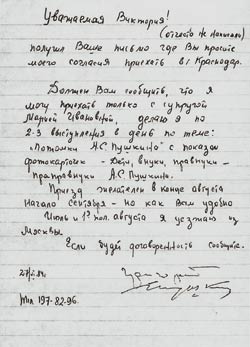 Уважаемая Виктория!
(отчество не написали)
получил Ваше письмо где Вы просите
моего согласия приехать в г Краснодар.
Должен Вам сообщить, что я
могу приехать только с супругой
Марией Ивановной, делаю я по
2-3 выступления в день по теме:
"Потомки А.С Пушкина" с показом
фотокарточек - Дети, внуки, правнуки -
праправнуки А.С Пушкина.
Приезд желателен в конце августа
начало сентября - но как Вам удобно
Июль и 1ю пол. августа я уезжаю из
Москвы.
Если будет договоренность сообщите.
84г.
тел 197-82-96.